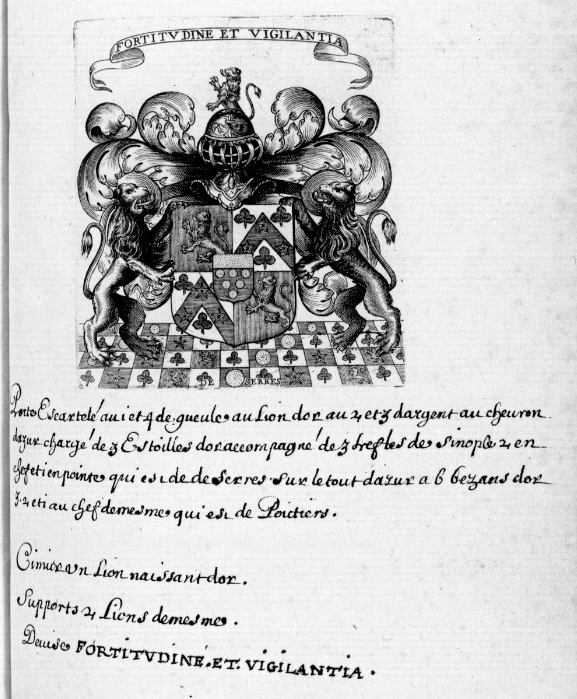 FORTITVDINE ET VIGILANTIA
DE SERRES
Porte Escartelé au i et 4 de gueule au Lion dor au 2 et 3 dargent au cheuron
dazur chargé de 3 Estoilles dor accompagné de 3 trefles de sinople 2 en
chef et i en pointe qui est de de Serres. Sur le tout dazur a 6 bezans dor
3. 2 et i au chef de mesme qui est de Poictiers.
Cimier vn Lion naissant dor.
Supports 2 Lions de mesme.
Deuise FORTITVDINE. ET. VIGILANTIA.